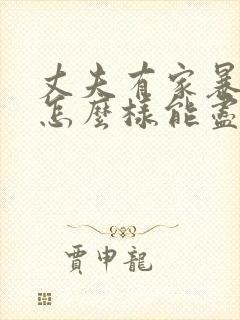 丈夫有家暴
怎麼樣能盡
賈申龍